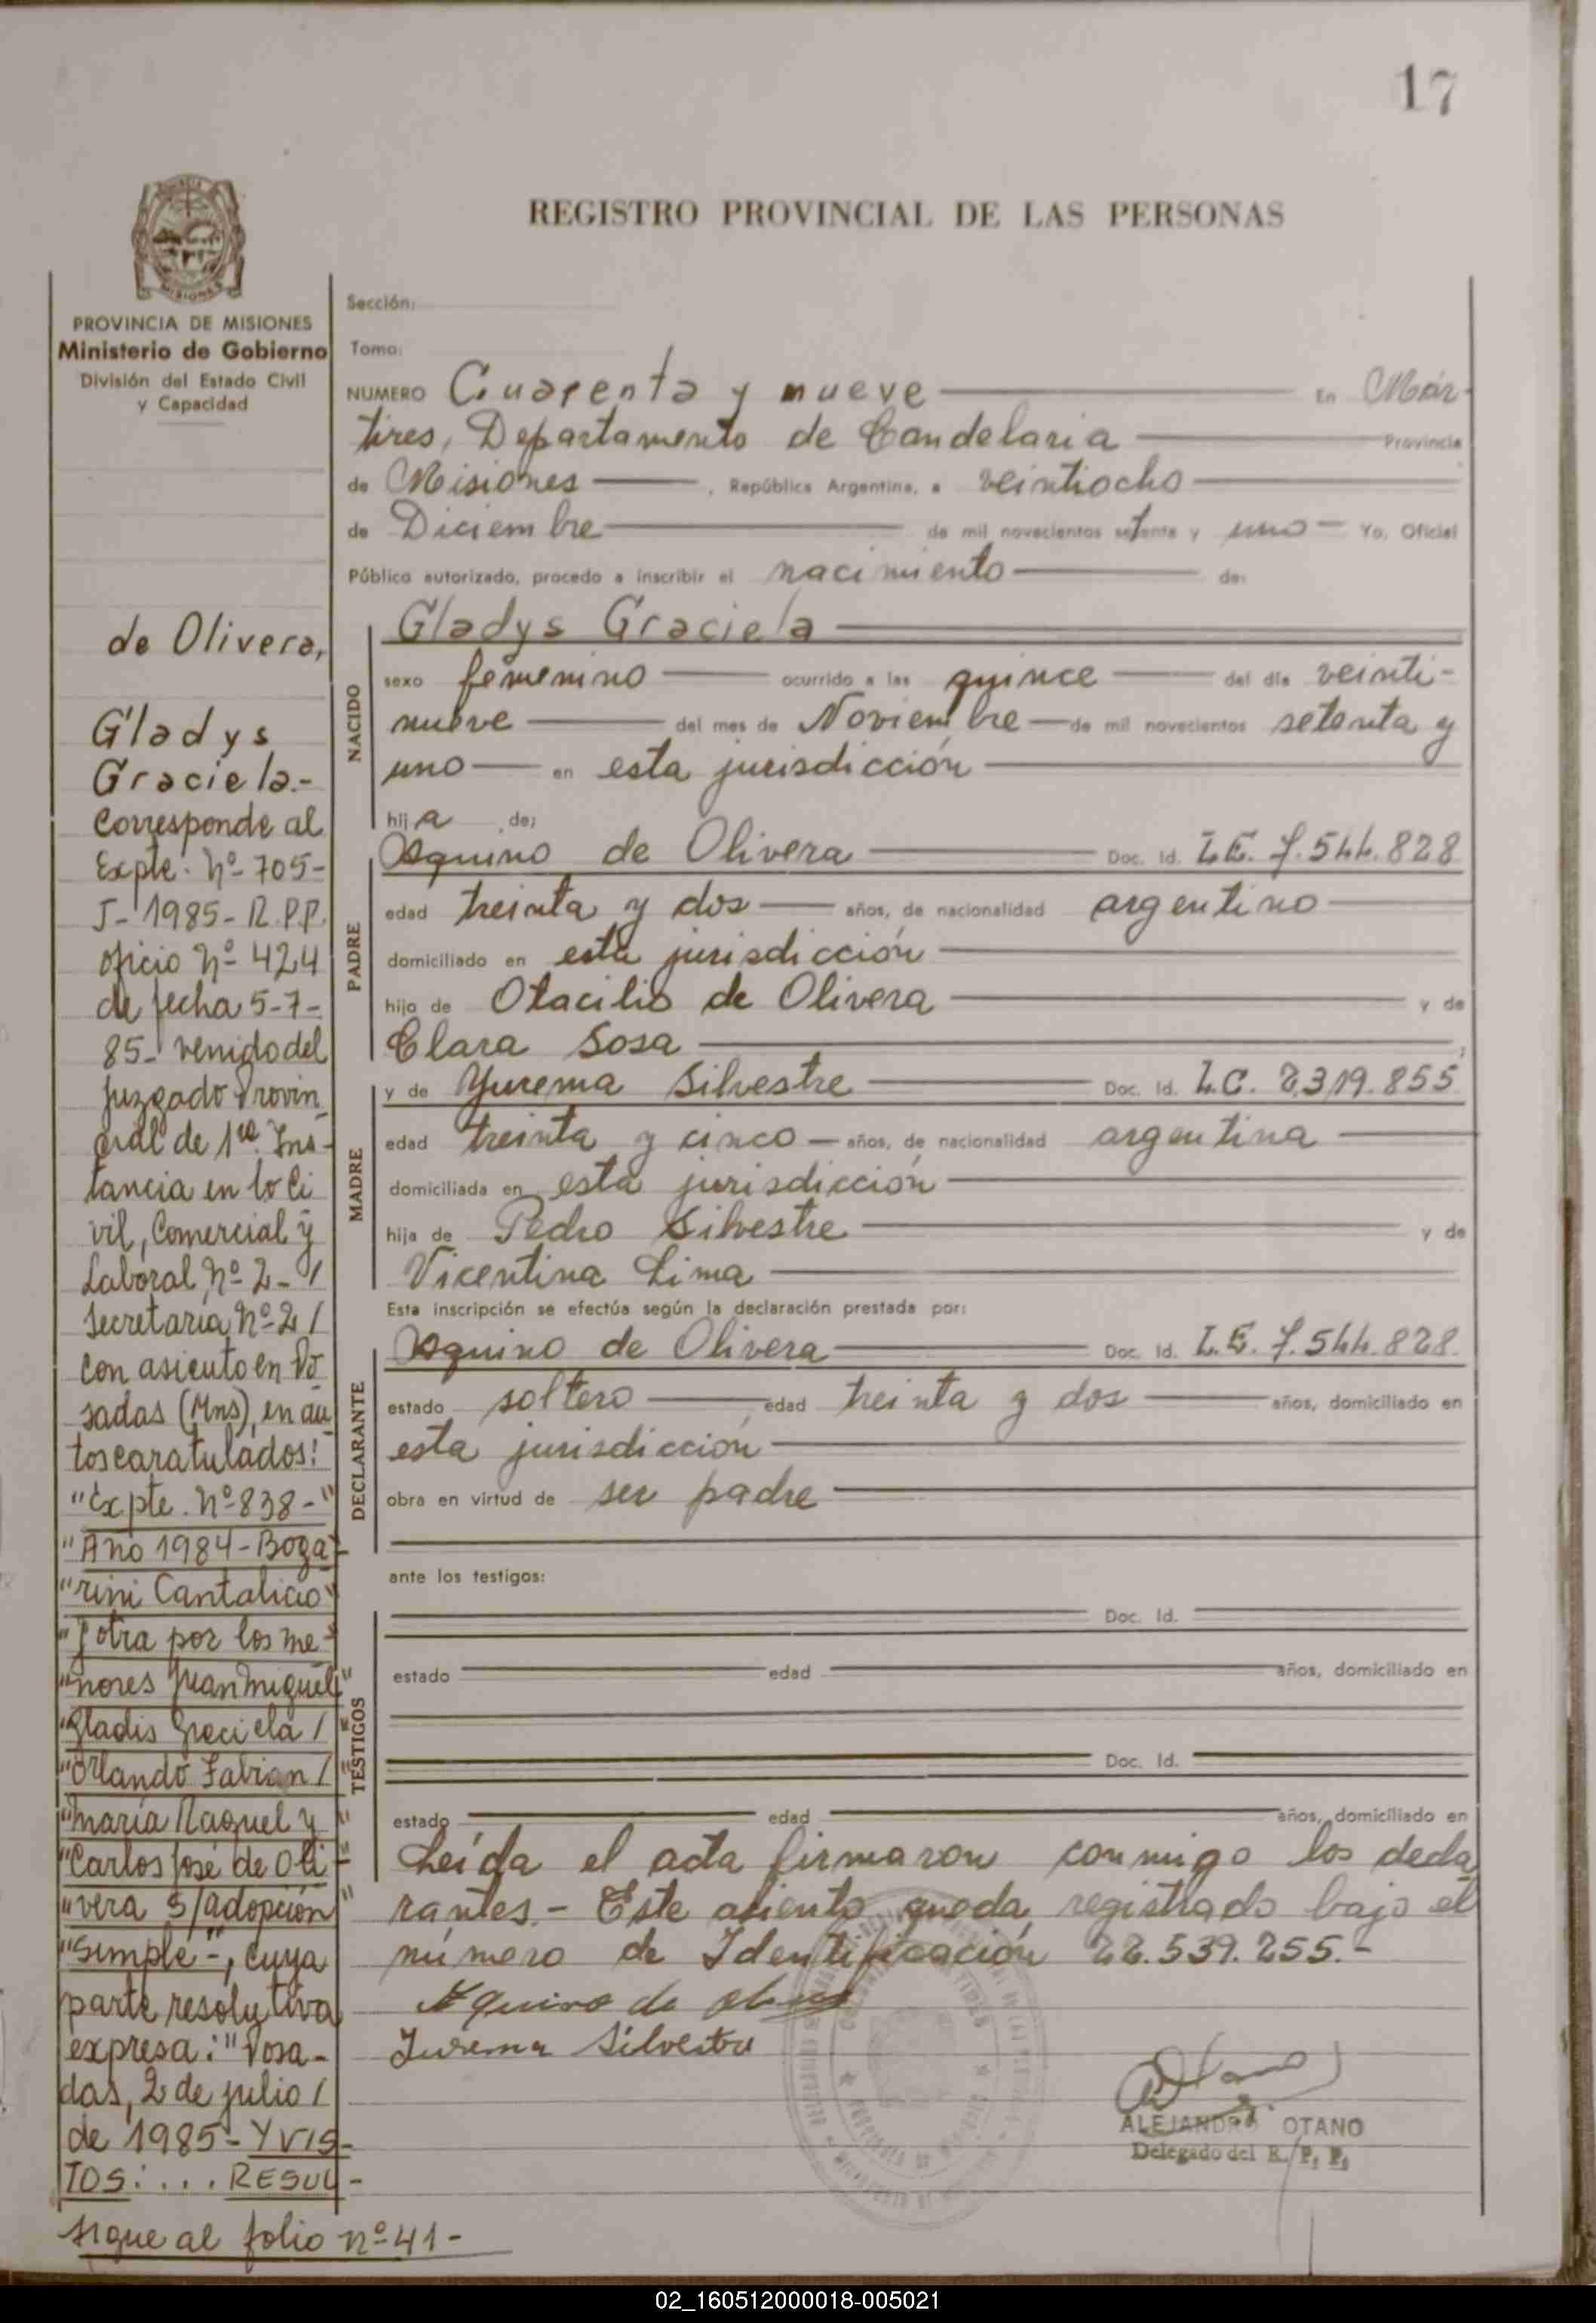 17
REGISTRO PROVINCIAL DE LAS PERSONAS
PROVINCIA DE MISIONES
Ministerio de Gobierno
División del Estado Civil
y Capacidad
de Olivera,
Gladys
Graciela.-
Corresponde al
Expte. Nº 705-
J- 1985- R.P.P.
oficio Nº 424
de fecha 5-7-
85- venido del
Juzgado Provin
cial de 1ra. Ins-
tancia en lo Ci
vil, Comercial y
Laboral Nº 2- /
Secretaria Nº 2 /
con asiento en Po
sadas (Mns), en au
tos caratulados:
"Expte. Nº 838-"
"Año 1984- Boga-
"rini Cantalicio"
"y otra por los me-
"nores Juan Miguel"
"Gladis Graciela /"
"Orlando Fabian /"
"María Raquel y"
"Carlos José de Oli-
"vera S/adopción"
"simple-", cuya
parte resolutiva
expresa: "Posa-
das, 2 de julio /
de 1985- Y VIS-
TOS: . . . RESUL-
sigue al folio nº 41-
Sección:
Tomo:
NUMERO Cuarenta y nueve En Már-
tires, Departamento de Candelaria Provincia
de Misiones, República Argentina, a veintiocho
de Diciembre de mil novecientos setenta y uno Yo, Oficial
Público autorizado, procedo a inscribir el nacimiento de:
NACIDO
Gladys Graciela
sexo femenino ocurrido a las quince del día veinti-
nueve del mes de Noviembre de mil novecientos setenta y
uno en esta jurisdicción
hija de:
PADRE
Aquino de Olivera Doc. Id. L.E. 7.544.828
edad treinta y dos años, de nacionalidad argentino
domiciliado en esta jurisdicción
hijo de Otacilio de Olivera y de
Clara Sosa
MADRE
y de Yurema Silvestre Doc. Id. L.C. 2.319.855
edad treinta y cinco años, de nacionalidad argentina
domiciliada en esta jurisdicción
hija de Pedro Silvestre y de
Vicentina Lima
Esta inscripción se efectúa según la declaración prestada por:
DECLARANTE
Aquino de Olivera Doc. Id. L.E. 7.544.828.
estado soltero edad treinta y dos años, domiciliado en
esta jurisdicción
obra en virtud de ser padre
ante los testigos:
TESTIGOS
Doc. Id.
estado edad años, domiciliado en
Doc. Id.
estado edad años, domiciliado en
Leída el acta firmaron conmigo los decla
rantes.- Este asiento queda registrado bajo el
número de Identificación 22.539.255.-
Aquino de
Jurema Silvestre
ALEJANDRO OTANO
Delegado del R. P. P.
02_160512000018-005021